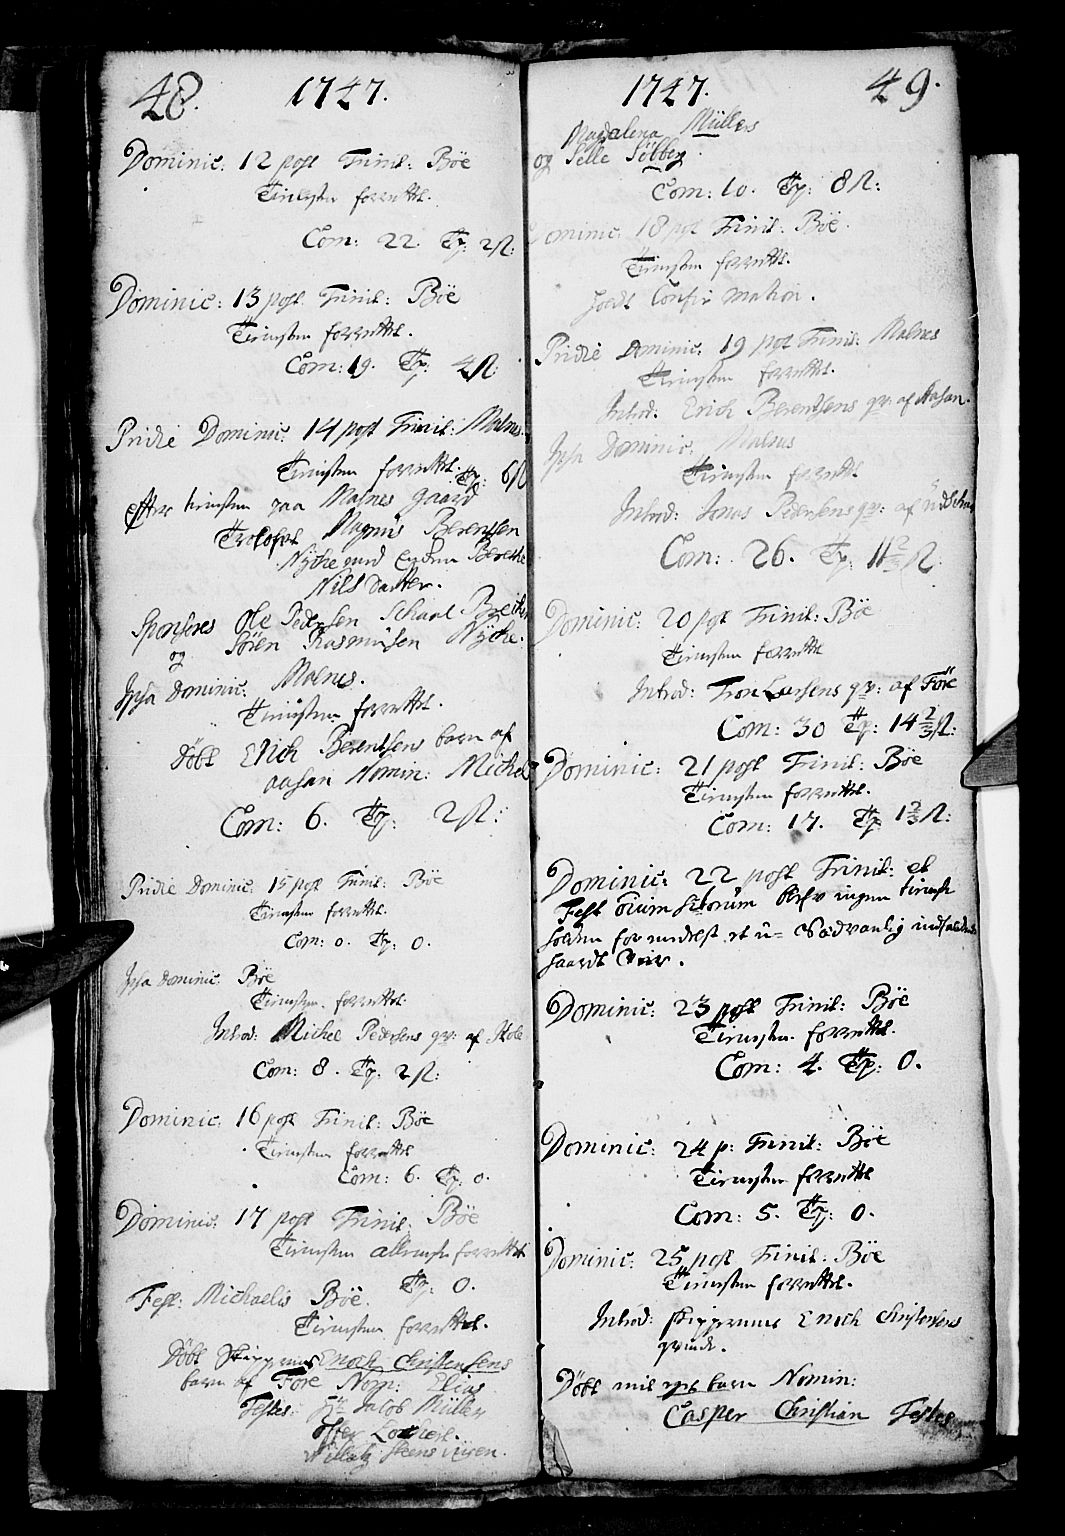 48. 1747.
Dominic: 12 post Trinit: Bøe
Tienesten forrettet.
Com: 22. Tp: 2 ß:
Dominic: 13 post Trinit: Bøe
Tienesten forrettet.
Com: 19. Tp: 4 ß:
Pridie Dominic: 14 post Trinit: Malnes.
Tienesten forrettet. Tp: 6 ß
efter tienesten paa Malnes Gaard
Trolofvet Magnus Berentsen
Nyche med Enchen Berethe
Nils Datter.
Sponseres Ole Pedersen
og Sören Rasmusen Nyche.
Ipsa Dominic: Malnes.
Tienesten forrettet.
Döbt Erich Berentsens barn af
aasan Nomin: Michel
Com: 6. Tp: 2 ß:
Pridie Dominic: 15 post Trinit: Bøe
Tienesten forrettet.
Com: 0. Tp: 0.
Ipsa Dominic: Bøe
Tienesten forrettet.
Introd: Michel Pedersens qv: af
Com: 8. Tp: 2 ß:
Dominic: 16 post Trinit: Bøe
Tienesten forrettet
Com: 6. Tp: 0.
Dominic: 17 post Trinit: Bøe
Tienesten forrettet
Tp: 0.
Fest: Michaelis Bøe.
Tienesten forrettet.
Döbt Enoch Christensens
barn af Före Nom: Elias
Testes: Hr Jacob Müller
1747. 49.
Magdalena Müllers
og
Com: 10. Tp: 8 ß:
Dominic: 18 post Trinit: Bøe.
Tienesten forrettet.
holdt Confirmation.
Pridie Dominic: 19 post Trinit: Malnes
Tienesten forrettet.
Introd: Erich Berentsens qv: af Aasan.
Ipsa Dominic: Malnes
Tienesten forrettet
Introd: Jonas Pedersens qv: af
Com: 26. Tp: 11 2/3 ß
Dominic: 20 post Trinit: Bøe
Tienesten forrettet
Introd: Tron Larsens qv: af Före
Com: 30 Tp: 14 2/3 ß:
Dominic: 21 post Trinit: Bøe
Tienesten forrettet.
Com: 17. Tp: 1 2/3 ß:
Dominic: 22 post Trinit: et
Fest Omnium Sanctorum blef ingen tieneste
holden formedelst et u-sædvanlig indfaldende
haardt Veir.
Dominic: 23 post Trinit: Bøe
Tienesten forrettet.
Com: 4. Tp: 0.
Dominic: 24 p: Trinit: Bøe
Tienesten forrettet
Com: 5. Tp: 0.
Dominic: 25 post Trinit: Bøe
Tienesten forrettet.
Introd: Enoch Christensens
qvinde.
Döbt mit barn Nomin:
Casper Christian Testes